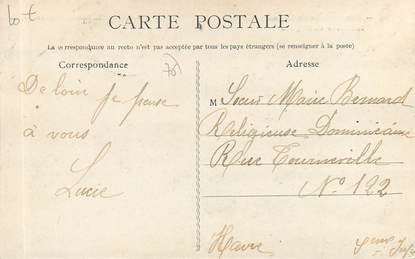 CARTE POSTALE
La correspondance au recto n'est pas acceptée par tous les pays étrangers (se renseigner à la poste)
Correspondance
Adresse
De loin je pense
à vous
Lucie
M Soeur Marie Bernard
Religieuse Dominicaine
Rue Tourneville
No 122
Havre